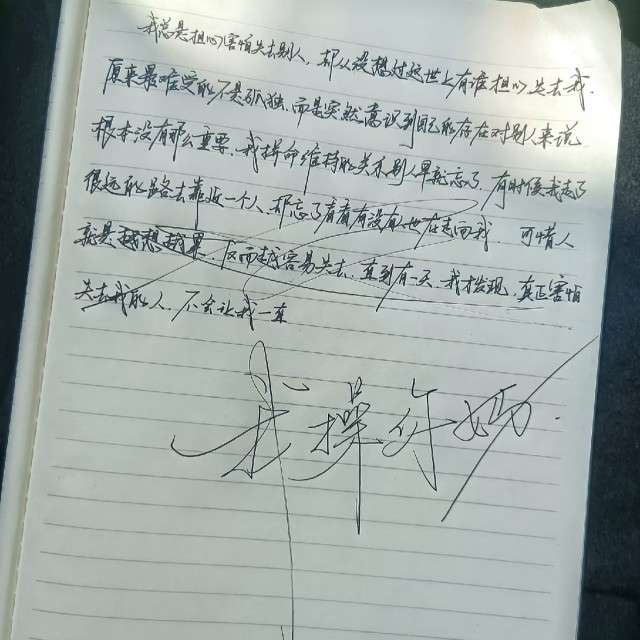 我总是担心害怕失去别人,却从没想过这世上有谁担心失去我.
原来最难受的不是孤独.而是突然意识到自己的存在对别人来说
根本没有那么重要.我拼命维持的关系别人早就忘了.有时候我走了
很远的路去靠近一个人.却忘了看看有没有人也在走向我.可惜人
就是越想越累.反而越容易失去.直到有一天.我发现.真正害怕
失去我的人,不会让我一直
我操你妈.